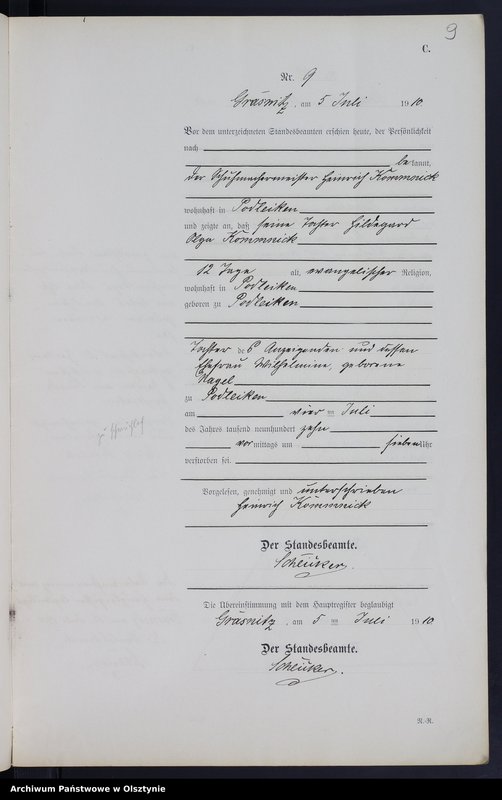 9
C.
Nr. 9
Gräsnitz, am 5 Juli 1910.
Vor dem unterzeichneten Standesbeamten erschien heute, der Persönlichkeit
nach
bekannt,
der Schuhmachermeister Heinrich Kömmnick
wohnhaft in Podleiken
und zeigte an, daß seine Tochter Hildegard
Olga Kömmnick
12 Tage alt, evangelischer Religion,
wohnhaft in Podleiken
geboren zu Podleiken
Tochter des Anzeigenden und dessen
Ehefrau Wilhelmine, geborene
Nagel
zu Podleiken
am vier ten Juli
des Jahres tausend neunhundert zehn
vor mittags um sieben Uhr
verstorben sei.
Vorgelesen, genehmigt und unterschrieben
Heinrich Kömmnick
Der Standesbeamte.
Scheuker.
Die Übereinstimmung mit dem Hauptregister beglaubigt
Gräsnitz, am 5 ten Juli 1910
Der Standesbeamte.
Scheuker.
R.-R.
Archiwum Państwowe w Olsztynie